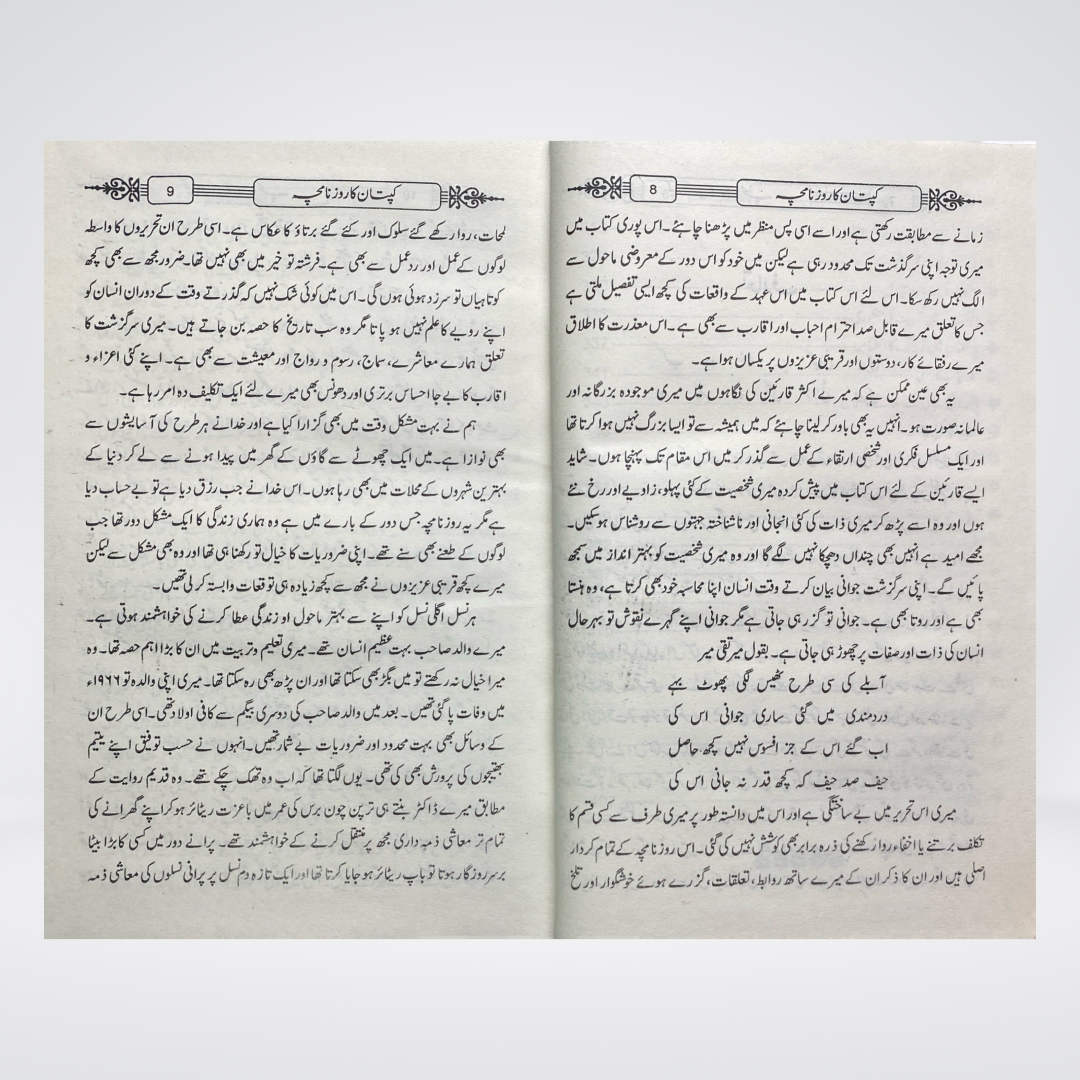 8
کپتان کا روزنامچہ
زمانے سے مطابقت رکھتی ہے اور اسے اسی پس منظر میں پڑھنا چاہئے۔ اس پوری کتاب میں
میری توجہ اپنی سرگذشت تک محدود رہی ہے لیکن میں خود کو اس دور کے معروضی ماحول سے
الگ نہیں رکھ سکا۔ اس لئے اس کتاب میں اس عہد کے واقعات کی کچھ ایسی تفصیل ملتی ہے
جس کا تعلق میرے قابل صد احترام احباب اور اقارب سے بھی ہے۔ اس معذرت کا اطلاق
میرے رفقائے کار، دوستوں اور قریبی عزیزوں پر یکساں ہوا ہے۔
یہ بھی عین ممکن ہے کہ میرے اکثر قارئین کی نگاہوں میں میری موجودہ بزرگانہ اور
عالمانہ صورت ہو۔ انہیں یہ بھی باور کر لینا چاہئے کہ میں ہمیشہ سے تو ایسا بزرگ نہیں ہوا کرتا تھا
اور ایک مسلسل فکری اور شخصی ارتقاء کے عمل سے گذر کر میں اس مقام تک پہنچا ہوں۔ شاید
ایسے قارئین کے لئے اس کتاب میں پیش کردہ میری شخصیت کے کئی پہلو، زاویے اور رخ نئے
ہوں اور وہ اسے پڑھ کر میری ذات کی کئی انجانی اور ناشناختہ جہتوں سے روشناس ہو سکیں۔
مجھے امید ہے انہیں بھی چنداں دھچکا نہیں لگے گا اور وہ میری شخصیت کو بہتر انداز میں سمجھ
پائیں گے۔ اپنی سرگزشت جوانی بیان کرتے وقت انسان اپنا محاسبہ خود بھی کرتا ہے، وہ ہنستا
بھی ہے اور روتا بھی ہے۔ جوانی تو گزر ہی جاتی ہے مگر جوانی اپنے گہرے نقوش تو بہر حال
انسان کی ذات اور صفات پر چھوڑ ہی جاتی ہے۔ بقول میر تقی میر
آبلے کی سی طرح ٹھیس لگی پھوٹ بہے
دردمندی میں گئی ساری جوانی اس کی
اب گئے اس کے جز افسوس نہیں کچھ حاصل
حیف صد حیف کہ کچھ قدر نہ جانی اس کی
میری اس تحریر میں بے ساختگی ہے اور اس میں دانستہ طور پر میری طرف سے کسی قسم کا
تکلف برتنے یا اخفاء روا رکھنے کی ذرہ برابر بھی کوشش نہیں کی گئی۔ اس روزنامچہ کے تمام کردار
اصلی ہیں اور ان کا ذکر ان کے میرے ساتھ روابط، تعلقات، گزرے ہوئے خوشگوار اور تلخ
9
کپتان کا روزنامچہ
لمحات، روا رکھے گئے سلوک اور کئے گئے برتاؤ کا عکاس ہے۔ اسی طرح ان تحریروں کا واسطہ
لوگوں کے عمل اور ردعمل سے بھی ہے۔ فرشتہ تو خیر میں بھی نہیں تھا۔ ضرور مجھ سے بھی کچھ
کوتاہیاں تو سرزد ہوئی ہوں گی۔ اس میں کوئی شک نہیں کہ گذرتے وقت کے دوران انسان کو
اپنے رویے کا علم نہیں ہو پاتا مگر وہ سب تاریخ کا حصہ بن جاتے ہیں۔ میری سرگزشت کا
تعلق ہمارے معاشرے، سماج، رسوم و رواج اور معیشت سے بھی ہے۔ اپنے کئی اعزاء و
اقارب کا بے جا احساس برتری اور دھونس بھی میرے لئے ایک تکلیف دہ امر رہا ہے۔
ہم نے بہت مشکل وقت میں بھی گزارا کیا ہے اور خدا نے ہر طرح کی آسایشوں سے
بھی نوازا ہے۔ میں ایک چھوٹے سے گاؤں کے گھر میں پیدا ہونے سے لے کر دنیا کے
بہترین شہروں کے محلات میں بھی رہا ہوں۔ اس خدا نے جب رزق دیا ہے تو بے حساب دیا
ہے مگر یہ روزنامچہ جس دور کے بارے میں ہے وہ ہماری زندگی کا ایک مشکل دور تھا جب
لوگوں کے طعنے بھی سنے تھے۔ اپنی ضروریات کا خیال تو رکھنا ہی تھا اور وہ بھی مشکل سے لیکن
میرے کچھ قریبی عزیزوں نے مجھ سے کچھ زیادہ ہی توقعات وابستہ کر لی تھیں۔
ہر نسل اگلی نسل کو اپنے سے بہتر ماحول او زندگی عطا کرنے کی خواہشمند ہوتی ہے۔
میرے والد صاحب بہت عظیم انسان تھے۔ میری تعلیم و تربیت میں ان کا بڑا اہم حصہ تھا۔ وہ
میرا خیال نہ رکھتے تو میں بگڑ بھی سکتا تھا اور ان پڑھ بھی رہ سکتا تھا۔ میری اپنی والدہ تو ۱۹۶۶ء
میں وفات پا گئی تھیں۔ بعد میں والد صاحب کی دوسری بیگم سے کافی اولاد تھی۔ اسی طرح ان
کے وسائل بھی بہت محدود اور ضروریات بے شمار تھیں۔ انہوں نے حسب توفیق اپنے یتیم
بھتیجوں کی پرورش بھی کی تھی۔ یوں لگتا تھا کہ اب وہ تھک چکے تھے۔ وہ قدیم روایت کے
مطابق میرے ڈاکٹر بنتے ہی ترپن چون برس کی عمر میں باعزت ریٹائر ہو کر اپنے گھرانے کی
تمام تر معاشی ذمہ داری مجھ پر منتقل کرنے کے خواہشمند تھے۔ پرانے دور میں کسی کا بڑا بیٹا
برسر روزگار ہوتا تو باپ ریٹائر ہو جایا کرتا تھا اور ایک تازہ دم نسل پر پرانی نسلوں کی معاشی ذمہ